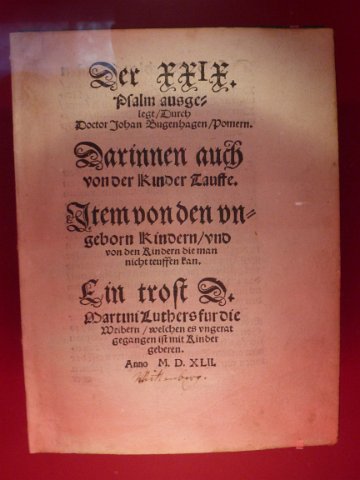 Der XXIX.
Psalm ausge-
legt/Durch
Doctor Johan Bugenhagen/Pomern.
Darinnen auch
von der Kinder Tauffe.
Item von den vn-
geborn Kindern/vnd
von den Kindern die man
nicht teuffen kan.
Ein trost D.
Martini Luthers fur die
Weibern/welchen es vngerat
gegangen ist mit Kinder
geberen.
Anno M. D. XLII.